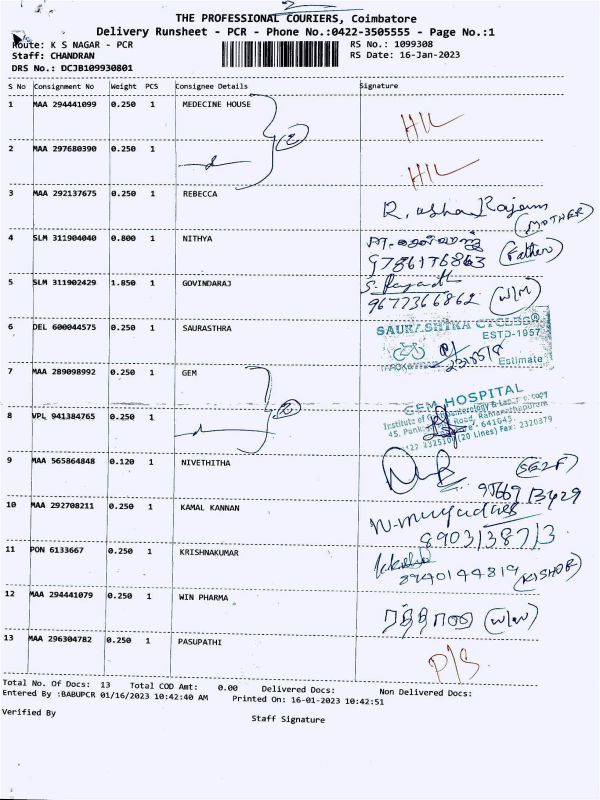 THE PROFESSIONAL COURIERS, Coimbatore
Delivery Runsheet - PCR - Phone No.:0422-3505555 - Page No.:1
Route: K S NAGAR - PCR RS No.: 1099308
Staff: CHANDRAN RS Date: 16-Jan-2023
DRS No.: DCJB109930801
S No Consignment No Weight PCS Consignee Details Signature
1 MAA 294441099 0.250 1 MEDECINE HOUSE
2 MAA 297680390 0.250 1
3 MAA 292137675 0.250 1 REBECCA
R. usha Rajam
(MOTHER)
4 SLM 311904040 0.800 1 NITHYA
9786176863 (Father)
5 SLM 311902429 1.850 1 GOVINDARAJ
9677366862 (W/M)
6 DEL 600044575 0.250 1 SAURASTHRA
SAURASHTRA CYCLES®
ESTD-1957
Estimate
7 MAA 289098992 0.250 1 GEM
GEM HOSPITAL
8 VPL 941384765 0.250 1
9 MAA 565864848 0.120 1 NIVETHITHA
(SELF)
10 MAA 292708211 0.250 1 KAMAL KANNAN
11 PON 6133667 0.250 1 KRISHNAKUMAR
(KISHOR)
12 MAA 294441079 0.250 1 WIN PHARMA
(W/M)
13 MAA 296304782 0.250 1 PASUPATHI
P/S
Total No. Of Docs: 13 Total COD Amt: 0.00 Delivered Docs: Non Delivered Docs:
Entered By :BABUPCR 01/16/2023 10:42:40 AM Printed On: 16-01-2023 10:42:51
Verified By Staff Signature